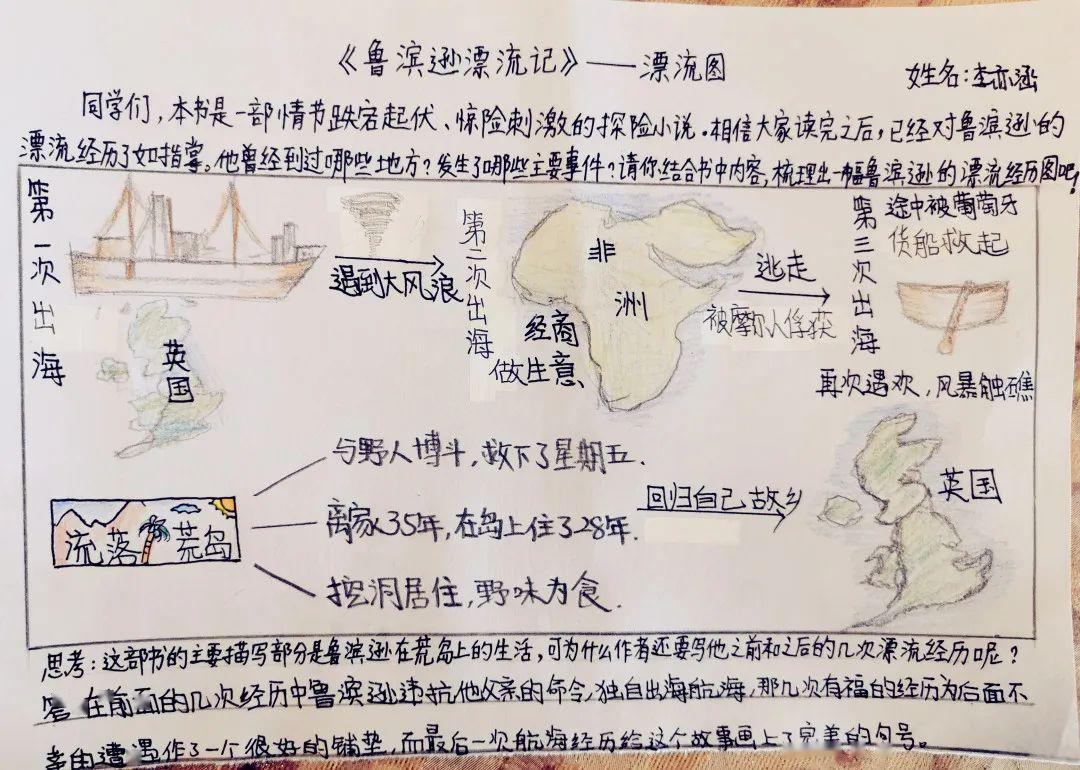 《鲁滨逊漂流记》——漂流图
姓名：李亦涵
同学们，本书是一部情节跌宕起伏、惊险刺激的探险小说。相信大家读完之后，已经对鲁滨逊的
漂流经历了如指掌。他曾经到过哪些地方？发生了哪些主要事件？请你结合书中内容，梳理出一幅鲁滨逊的漂流经历图吧！
第一次出海
英国
遇到大风浪
第二次出海
非洲
经商
做生意
逃走
被摩尔人俘获
第三次出海
途中被葡萄牙
货船救起
再次遇难，风暴触礁
流落荒岛
与野人博斗，救下了星期五．
离家35年，在岛上住了28年．
挖洞居住，野味为食．
回归自己故乡
英国
思考：这部书的主要描写部分是鲁滨逊在荒岛上的生活，可为什么作者还要写他之前和之后的几次漂流经历呢？
答 在前面的几次经历中鲁滨逊违抗他父亲的命令，独自出海航海，那几次有福的经历为后面不
幸的遭遇作了一个很好的铺垫，而最后一次航海经历给这个故事画上了完美的句号。